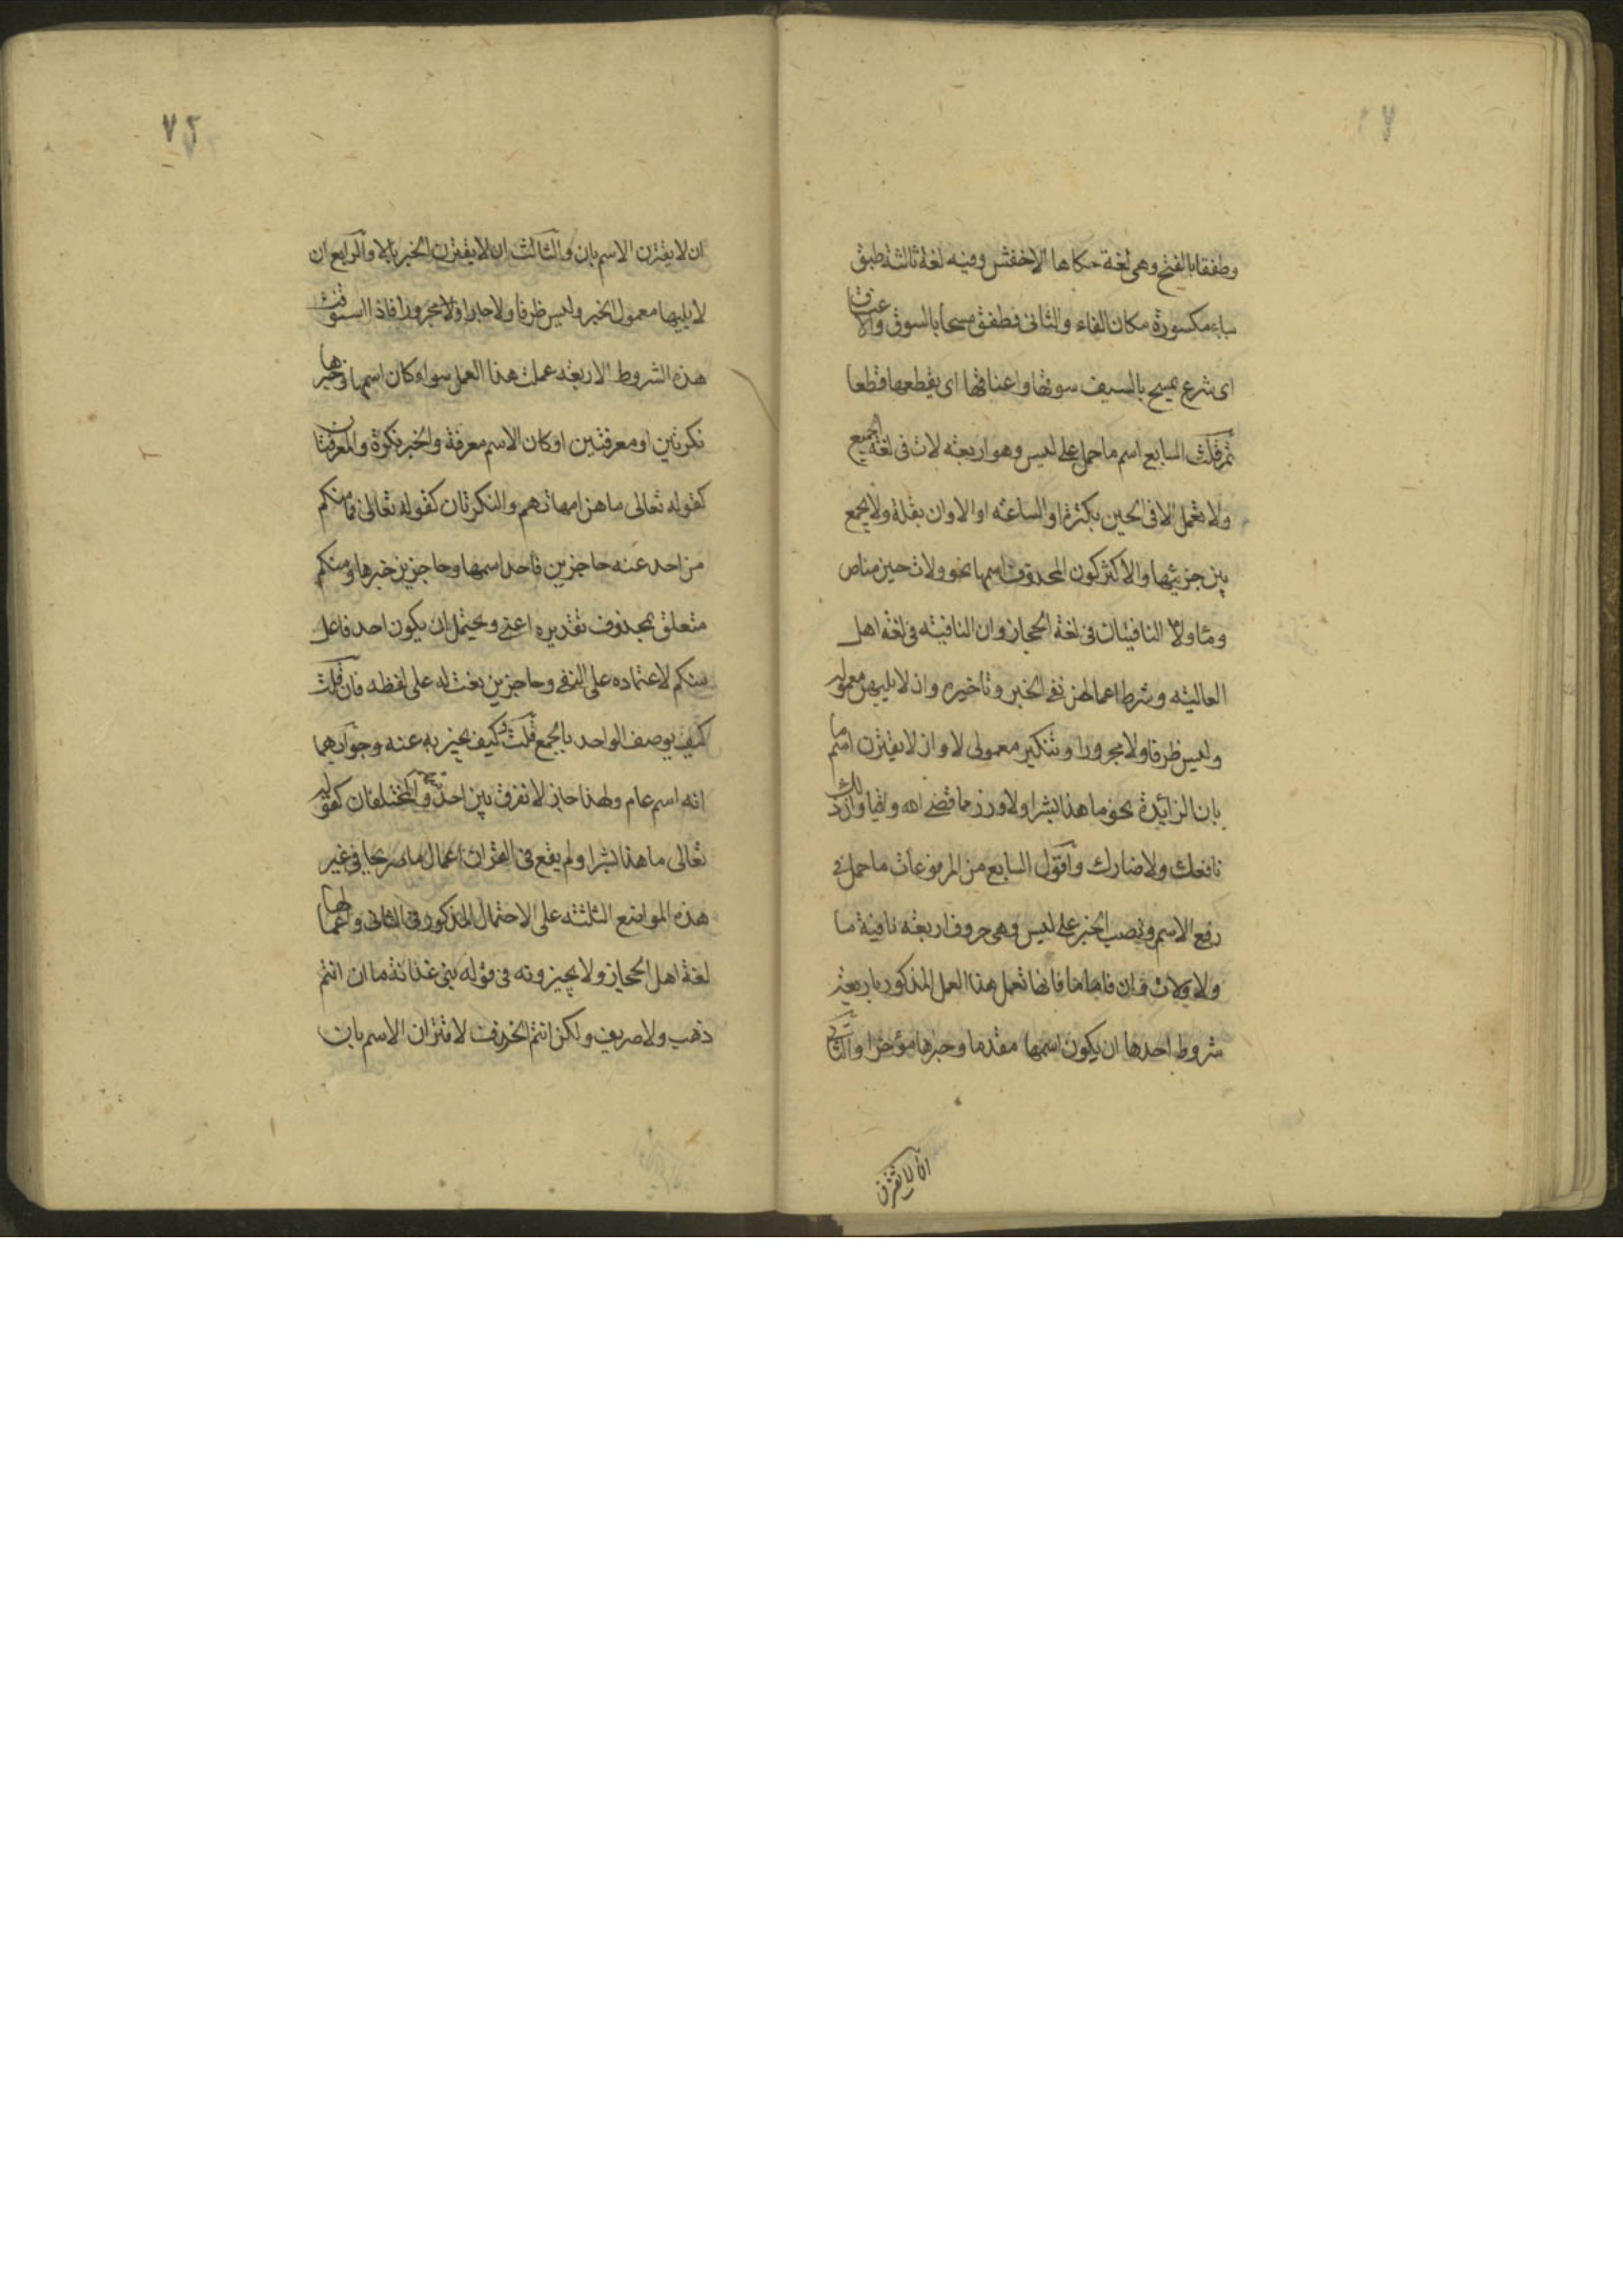 وطفقا بالفتح وهى لغة حكاها الاخفش وفيه لغة ثالثة طبق
بباء مكسورة مكان الفاء والثانى فطفق مسحا بالسوق والاعناق
اى شرع يمسح بالسيف سوقها واعناقها اى يقطعها قطعا
ثم قلت السابع اسم ما حمل على ليس وهو اربعة لات فى لغة الجميع
ولا تعمل الا فى الحين بكثرة او الساعة او الاوان بقلة ولا يجمع
بين جزئيها والاكثر كون المحذوف اسمها نحو ولات حين مناص
وما ولا النافيتان فى لغة الحجاز وان النافية فى لغة اهل
العالية وشرط اعمالهن نفى الخبر وتاخيره وان لا يليهن معموله
وليس ظرفا ولا مجرورا وتنكير معمولى لا وان لا يقترن اسم ما
بان الزايدة نحو ما هذا بشرا ولا وزر مما قضى الله واقيا وان ذلك
نافعك ولا ضارك واقول السابع من المرفوعات ما حمل فى
رفع الاسم ونصب الخبر على ليس وهى حروف اربعة نافية ما
ولا ولات وان فاما ما فانها تعمل هذا العمل المذكور باربعة
شروط احدها ان يكون اسمها مقدما وخبرها مؤخرا والثانى
ان لا يقترن
٧٢
ان لا يقترن الاسم بان والثالث ان لا يقترن الخبر بالا والرابع ان
لا يليها معمول الخبر وليس ظرفا ولا جارا ولا مجرورا فاذا استوفت
هذه الشروط الاربعة عملت هذا العمل سوا وكان اسمها وخبرها
نكرتين او معرفتين او كان الاسم معرفة والخبر نكرة والمعرفتان
كقوله تعالى ما هن امهاتهم والنكرتان كقوله تعالى فما منكم
من احد عنه حاجزين فاحد اسمها وحاجزين خبرها ومنكم
متعلق بمحذوف تقديره اعنى ويحتمل ان يكون احد فاعل
منكم لاعتماده على النفى وحاجزين نعت له على لفظه فان قلت
كيف يوصف الواحد بالجمع قلت وكيف يخبر به عنه وجوابهما
انه اسم عام ولهذا جاز لا نفرق بين احد والمختلفان كقوله
تعالى ما هذا بشرا ولم يقع فى القران اعمال ما صريحا فى غير
هذه المواضع الثلثة على الاحتمال المذكور فى الثانى واعمالها
لغة اهل الحجاز ولا يجيزونه فى قوله بنى غدانة ما ان انتم
ذهب ولا صريف ولكن انتم الخزف لاقتران الاسم بان